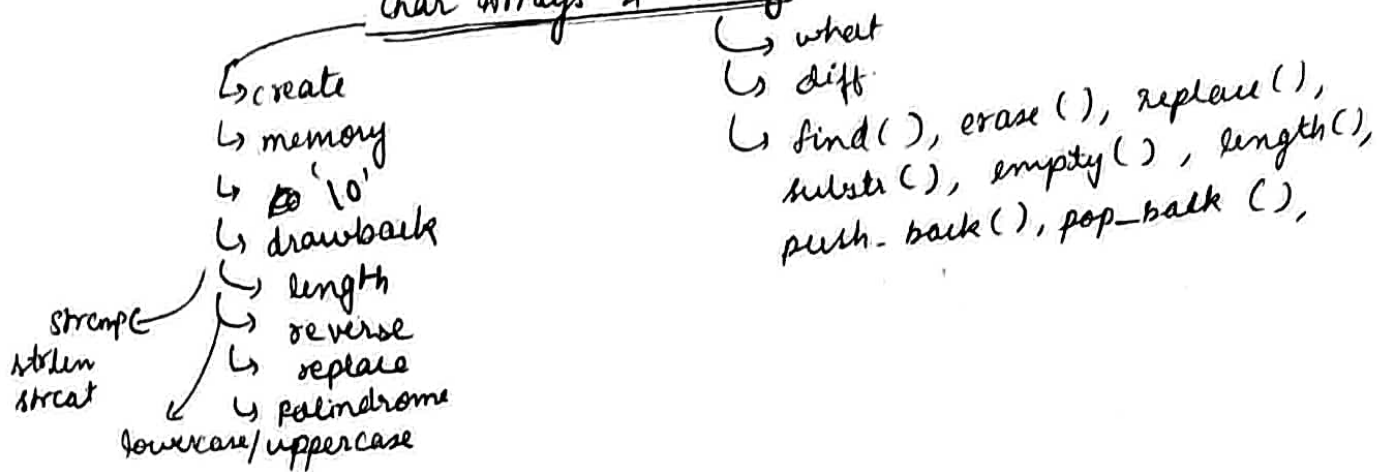 char arrays &
↳ create
↳ memory
↳ '\0'
↳ drawback
↳ length
↳ reverse
↳ replace
↳ palindrome
strcmp
strlen
strcat
lowercase/uppercase
↳ what
↳ diff
↳ find(), erase(), replace(),
substr(), empty(), length(),
push_back(), pop_back(),